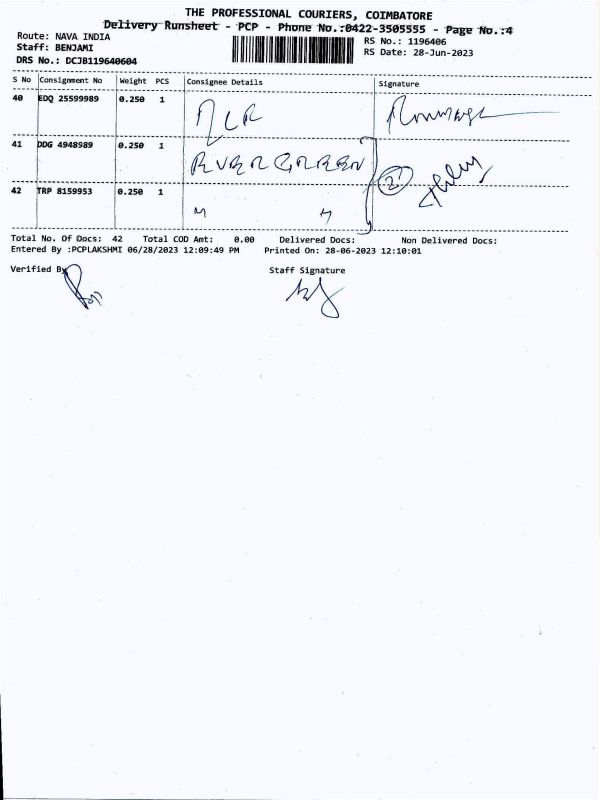 THE PROFESSIONAL COURIERS, COIMBATORE
Delivery Runsheet - PCP - Phone No.:0422-3505555 - Page No.:4
Route: NAVA INDIA
Staff: BENJAMI
DRS No.: DCJB119640604
RS No.: 1196406
RS Date: 28-Jun-2023
S No Consignment No Weight PCS Consignee Details Signature
40 EDQ 25599989 0.250 1
41 DDG 4948989 0.250 1
42 TRP 8159953 0.250 1
2
Total No. Of Docs: 42 Total COD Amt: 0.00 Delivered Docs: Non Delivered Docs:
Entered By :PCPLAKSHMI 06/28/2023 12:09:49 PM Printed On: 28-06-2023 12:10:01
Verified By Staff Signature